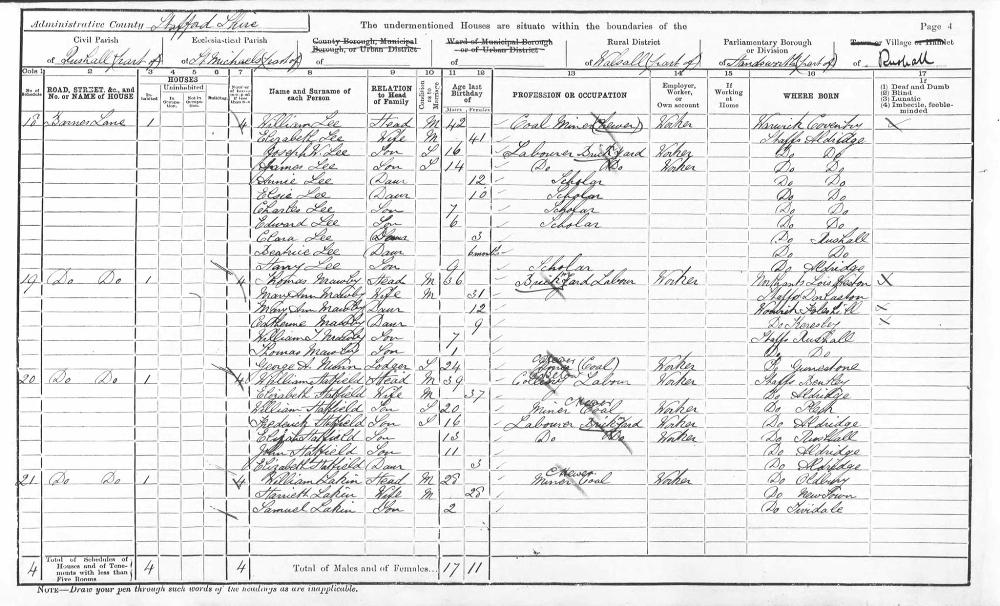 Administrative County Stafford Shire The undermentioned Houses are situate within the boundaries of the Page 4
Civil Parish Ecclesiastical Parish County Borough, Municipal Borough, or Urban District Ward of Municipal Borough or of Urban District Rural District Parliamentary Borough or Division Town or Village or Hamlet
of Rushall (part of) of St Michaels (part of) of of of Walsall (part of) of Handsworth (part of) of Rushall
Cols 1 2 3 4 5 6 7 8 9 10 11 12 13 14 15 16 17
No. of Schedule ROAD, STREET, &c., and No. or NAME of HOUSE HOUSES Inhabited Uninhabited In Occupation Not in Occupation Building Name and Surname of each Person RELATION to Head of Family Condition as to Marriage Age last Birthday of Males Females PROFESSION OR OCCUPATION Employer, Worker, or Own account If Working at Home WHERE BORN If (1) Deaf and Dumb (2) Blind (3) Lunatic (4) Imbecile, feeble-minded
18 Barnes Lane 1 4 William Lee Head M 42 Coal Miner (hewer) Worker Warwick Coventry
Elizabeth Lee Wife M 41 Staffs Aldridge
Joseph W. Lee Son S 16 Labourer Brick Yard Worker Do Do
James Lee Son S 14 Do Do Worker Do Do
Annie Lee Daur 12 Scholar Do Do
Elsie Lee Daur 10 Scholar Do Do
Charles Lee Son 7 Scholar Do Do
Edward Lee Son 6 Scholar Do Do
Clara Lee Daur 3 Do Rushall
Beatrice Lee Daur 6 months Do Do
Harry Lee Son 9 Scholar Do Aldridge
19 Do Do 1 4 Thomas Mawby Head M 36 Brick Yard Labour Worker Northants
Mary Ann Mawby Wife M 31 Staffs
Mary Ann Mawby Daur 12 Warwick Foleshill
Catherine Mawby Daur 9 Do Keresley
William T. Mawby Son 7 Staffs Rushall
Thomas Mawby Son 1 Do Do
George A. Lodger S 24 Hewer (Coal) Worker
20 Do Do 1 4 William Hatfield Head M 39 Colliery Labour Worker Staffs Bentley
Elizabeth Hatfield Wife M 37 Do Aldridge
William Hatfield Son S 20 Miner Hewer Coal Worker Do
Frederick Hatfield Son S 16 Labourer Brick Yard Worker Do Aldridge
Hatfield Son 13 Do Do Worker Do Rushall
John Hatfield Son 11 Do Aldridge
Elizabeth Hatfield Daur 3 Do Aldridge
21 Do Do 1 4 William Lakin Head M 28 Miner Hewer Coal Worker Do Oldbury
Harrieth Lakin Wife M 28 Do New Town
Samuel Lakin Son 2 Do Tividale
4 Total of Schedules of Houses and of Tenements with less than Five Rooms 4 4 Total of Males and of Females... 17 11
NOTE—Draw your pen through such words of the headings as are inapplicable.